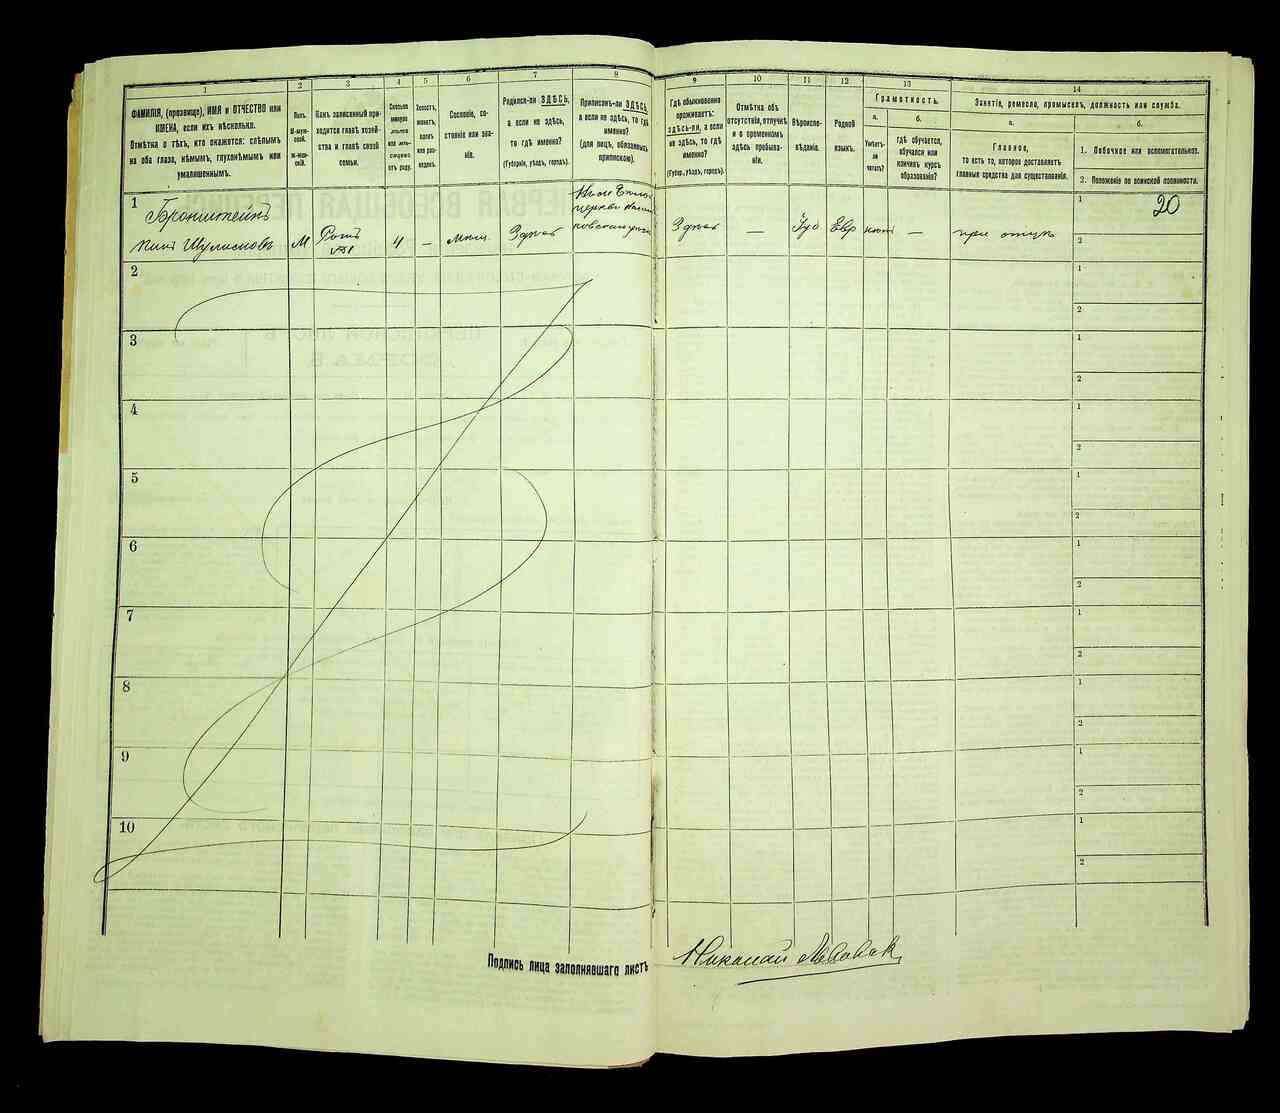 1
2
3
4
5
6
7
8
9
10
11
12
13
14
ФАМИЛІЯ, (прозвище), ИМЯ и ОТЧЕСТВО или
ИМЕНА, если ихъ нѣсколько.
Отмѣтка о тѣхъ, кто окажется: слѣпымъ
на оба глаза, нѣмымъ, глухонѣмымъ или
умалишеннымъ.
Полъ.
М-муж-
ской.
Ж-жен-
скій.
Какъ записанный при-
ходится главѣ хозяй-
ства и главѣ своей
семьи.
Сколько
минуло
лѣтъ
или мѣ-
сяцевъ
отъ роду.
Холостъ,
женатъ,
вдовъ
или раз-
веденъ.
Сословіе, со-
стояніе или зва-
ніе.
Родился-ли ЗДѢСЬ,
а если не здѣсь,
то гдѣ именно?
(Губернія, уѣздъ, городъ).
Приписанъ-ли ЗДѢСЬ,
а если не здѣсь, то гдѣ
именно?
(для лицъ, обязанныхъ
припискою).
Гдѣ обыкновенно
проживаетъ:
ЗДѢСЬ-ли, а если
не здѣсь, то гдѣ
именно?
(Губер., уѣздъ, городъ).
Отмѣтка объ
отсутствіи, отлучкѣ
и о временномъ
здѣсь пребыва-
ніи.
Вѣроиспо-
вѣданіе.
Родной
языкъ.
Грамотность.
а.
Умѣетъ-
ли
читать?
б.
гдѣ обучается,
обучался или
кончилъ курсъ
образованія?
Занятіе, ремесло, промыселъ, должность или служба.
а.
Главное,
то есть то, которое доставляетъ
главныя средства для существованія.
б.
1. Побочное или вспомогательное.
2. Положеніе по воинской повинности.
1
Бронштейнъ
М
4
—
Здѣсь
Здѣсь
—
Іуд
Евр
нѣтъ
—
при отцѣ
1
20
2
2
1
2
3
1
2
4
1
2
5
1
2
6
1
2
7
1
2
8
1
2
9
1
2
10
1
2
Подпись лица заполнявшаго листъ
Николай